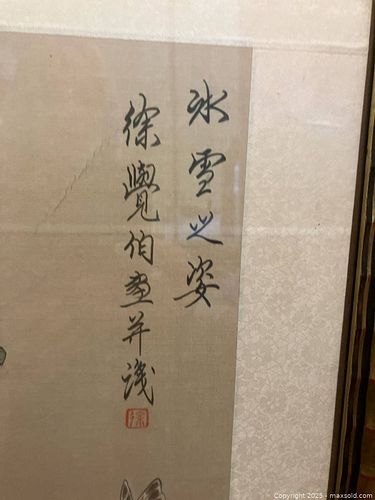 冰雪之姿
徐覺伯畫并識
徐
Copyright 2025 - maxsold.com